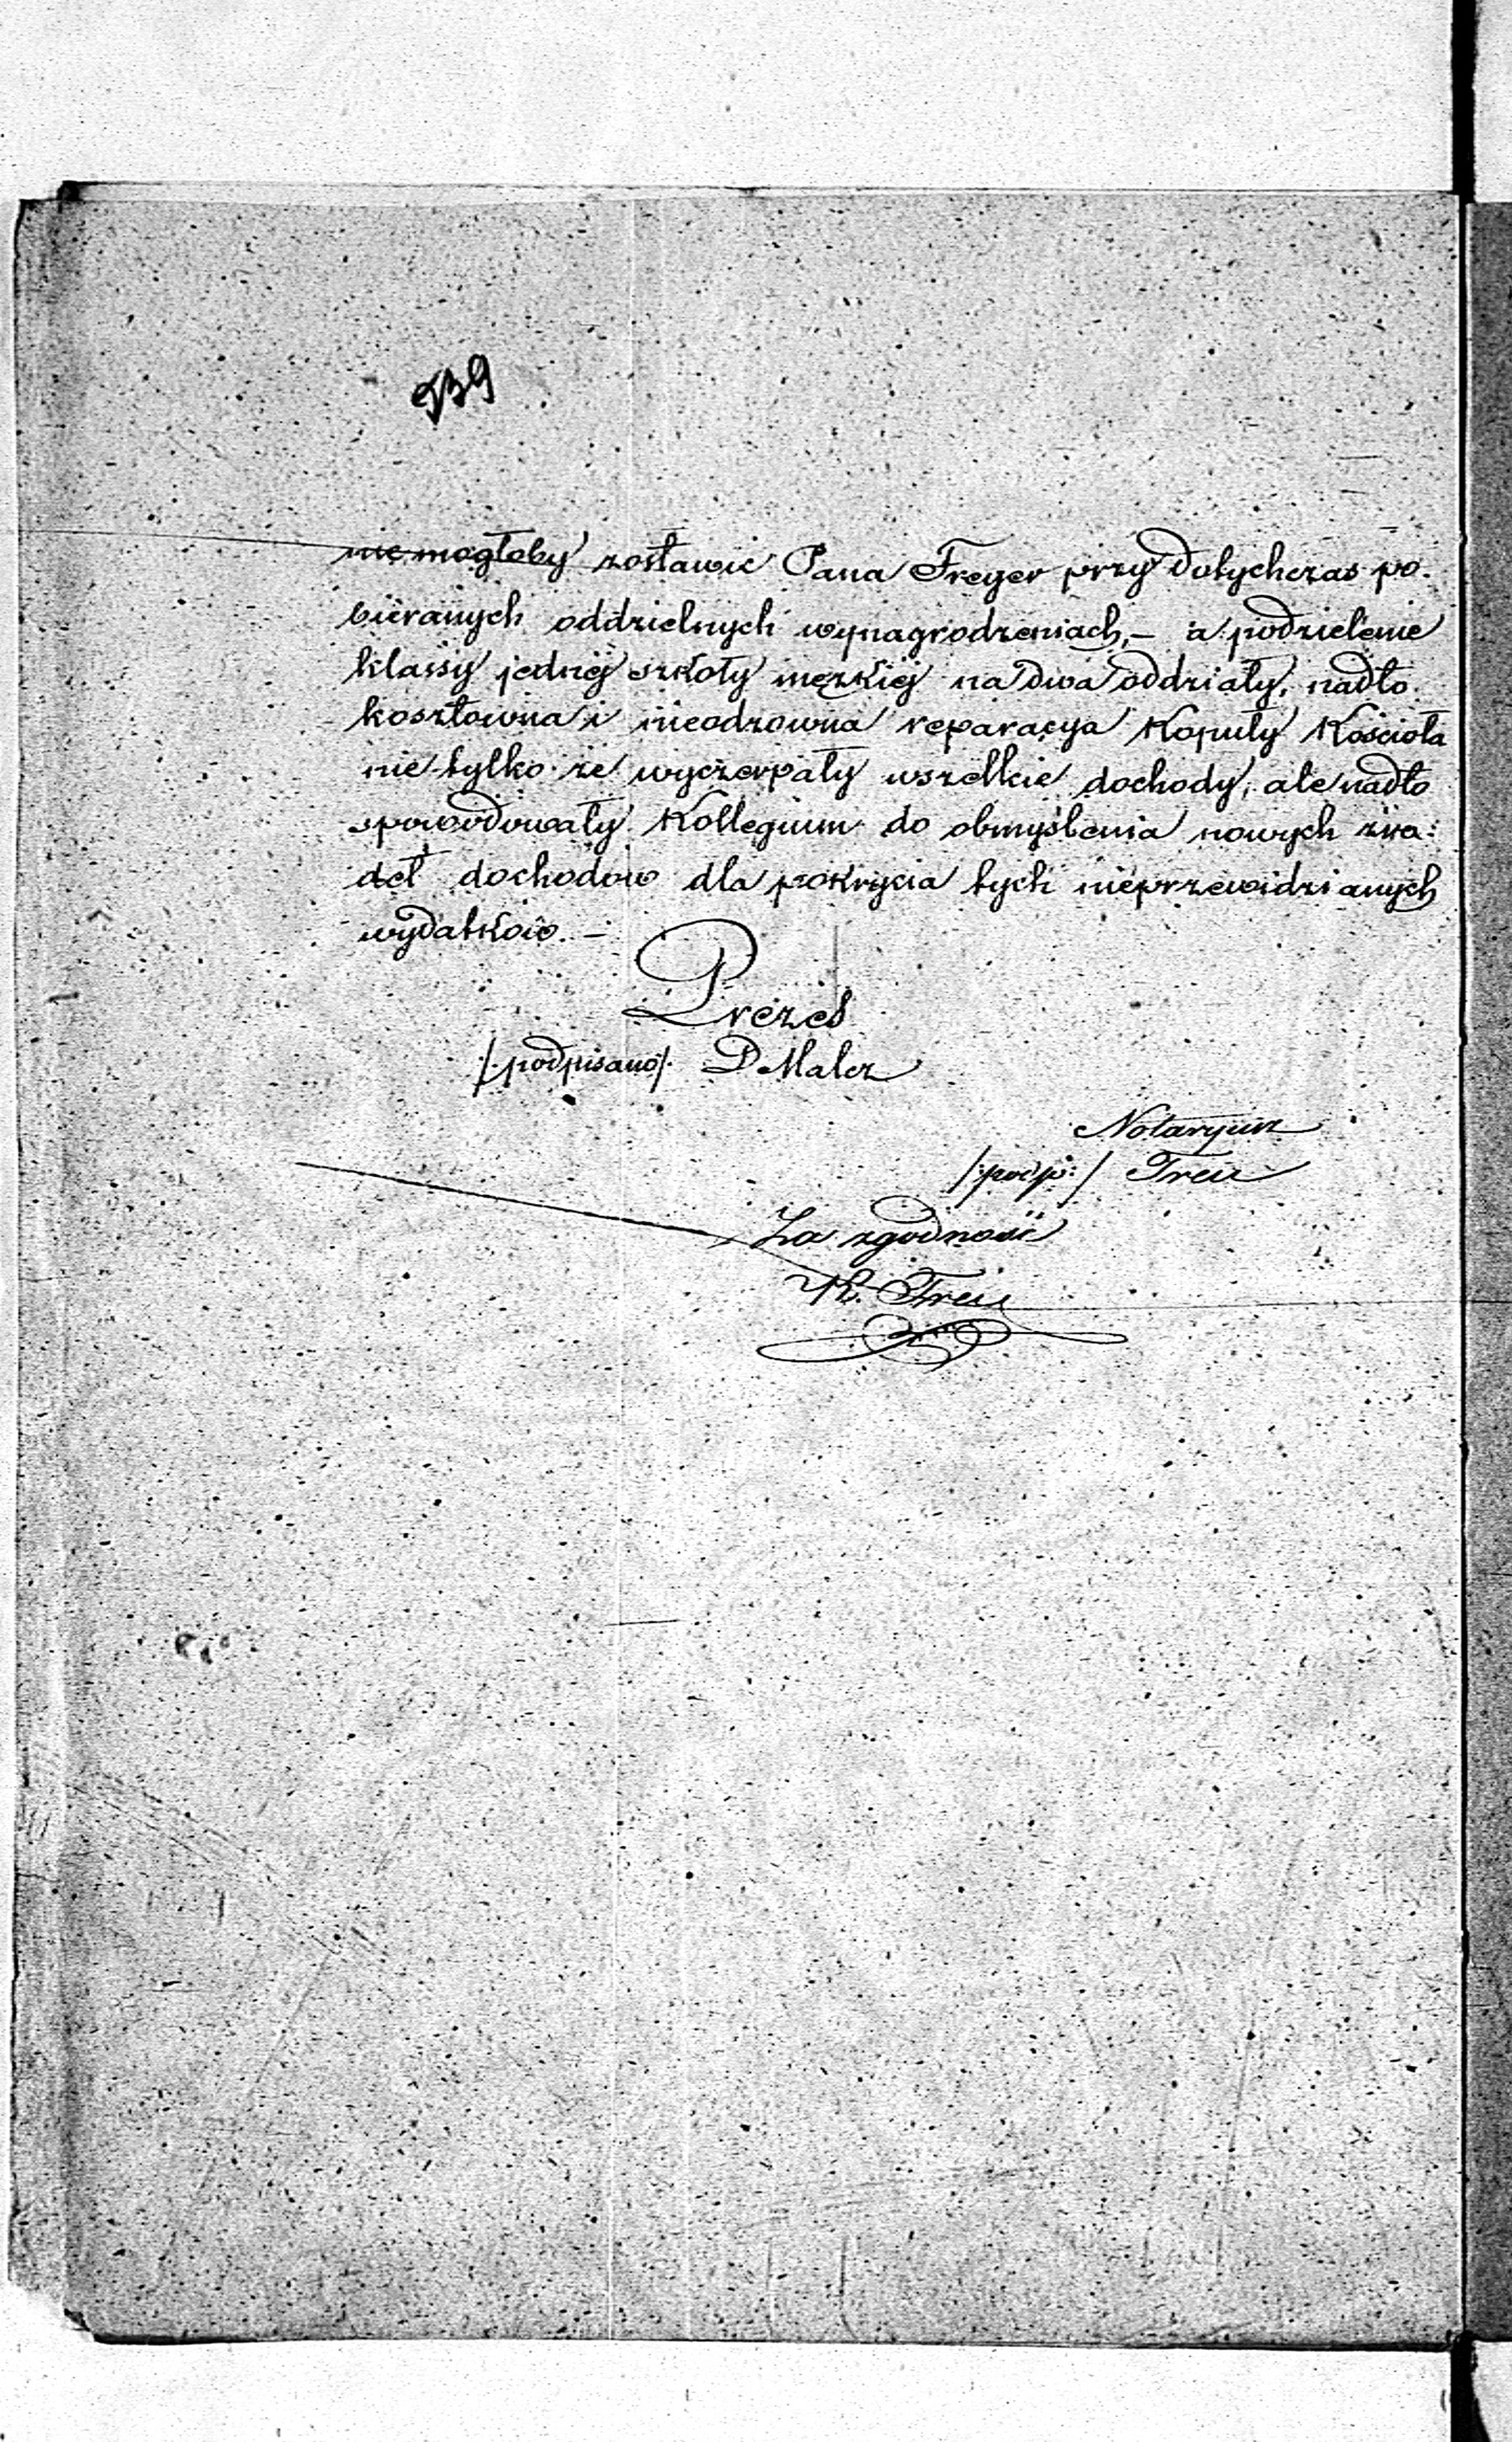 939
nie mogłoby zostawić Pana Freyer przy dotychczas po-
bieranych oddzielnych wynagrodzeniach, — a podzielenie
klassy jednéj szkoły męzkiéj na dwa oddziały, nadto
kosztowna i nieodzowna reparacya Kopuły Kościoła
nie tylko że wyczerpały wszelkie dochody, ale nadto
spowodowały Kollegium do obmyślenia nowych źró=
deł dochodów dla pokrycia tych nieprzewidzianych
wydatków. —
Prezes
/:podpisano/: D Malcz
Notaryusz
/:podp:/ Treu
Za zgodność
Treu